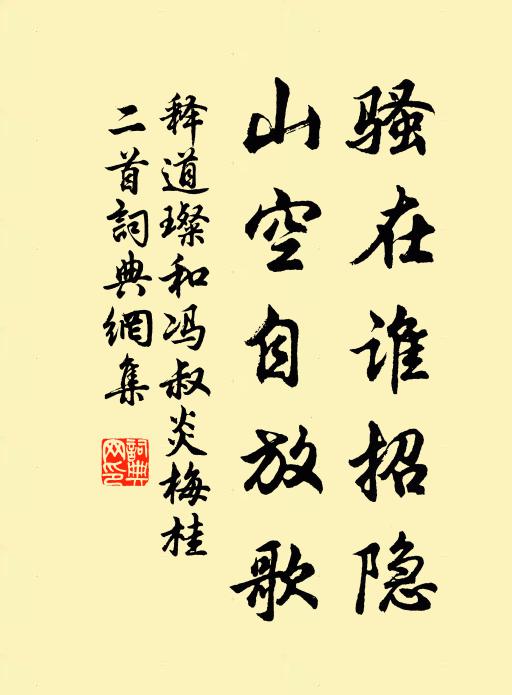 骚在谁招隐
山空自放歌
释道璨和冯叔炎梅桂
二首詞典網集
詞典网印